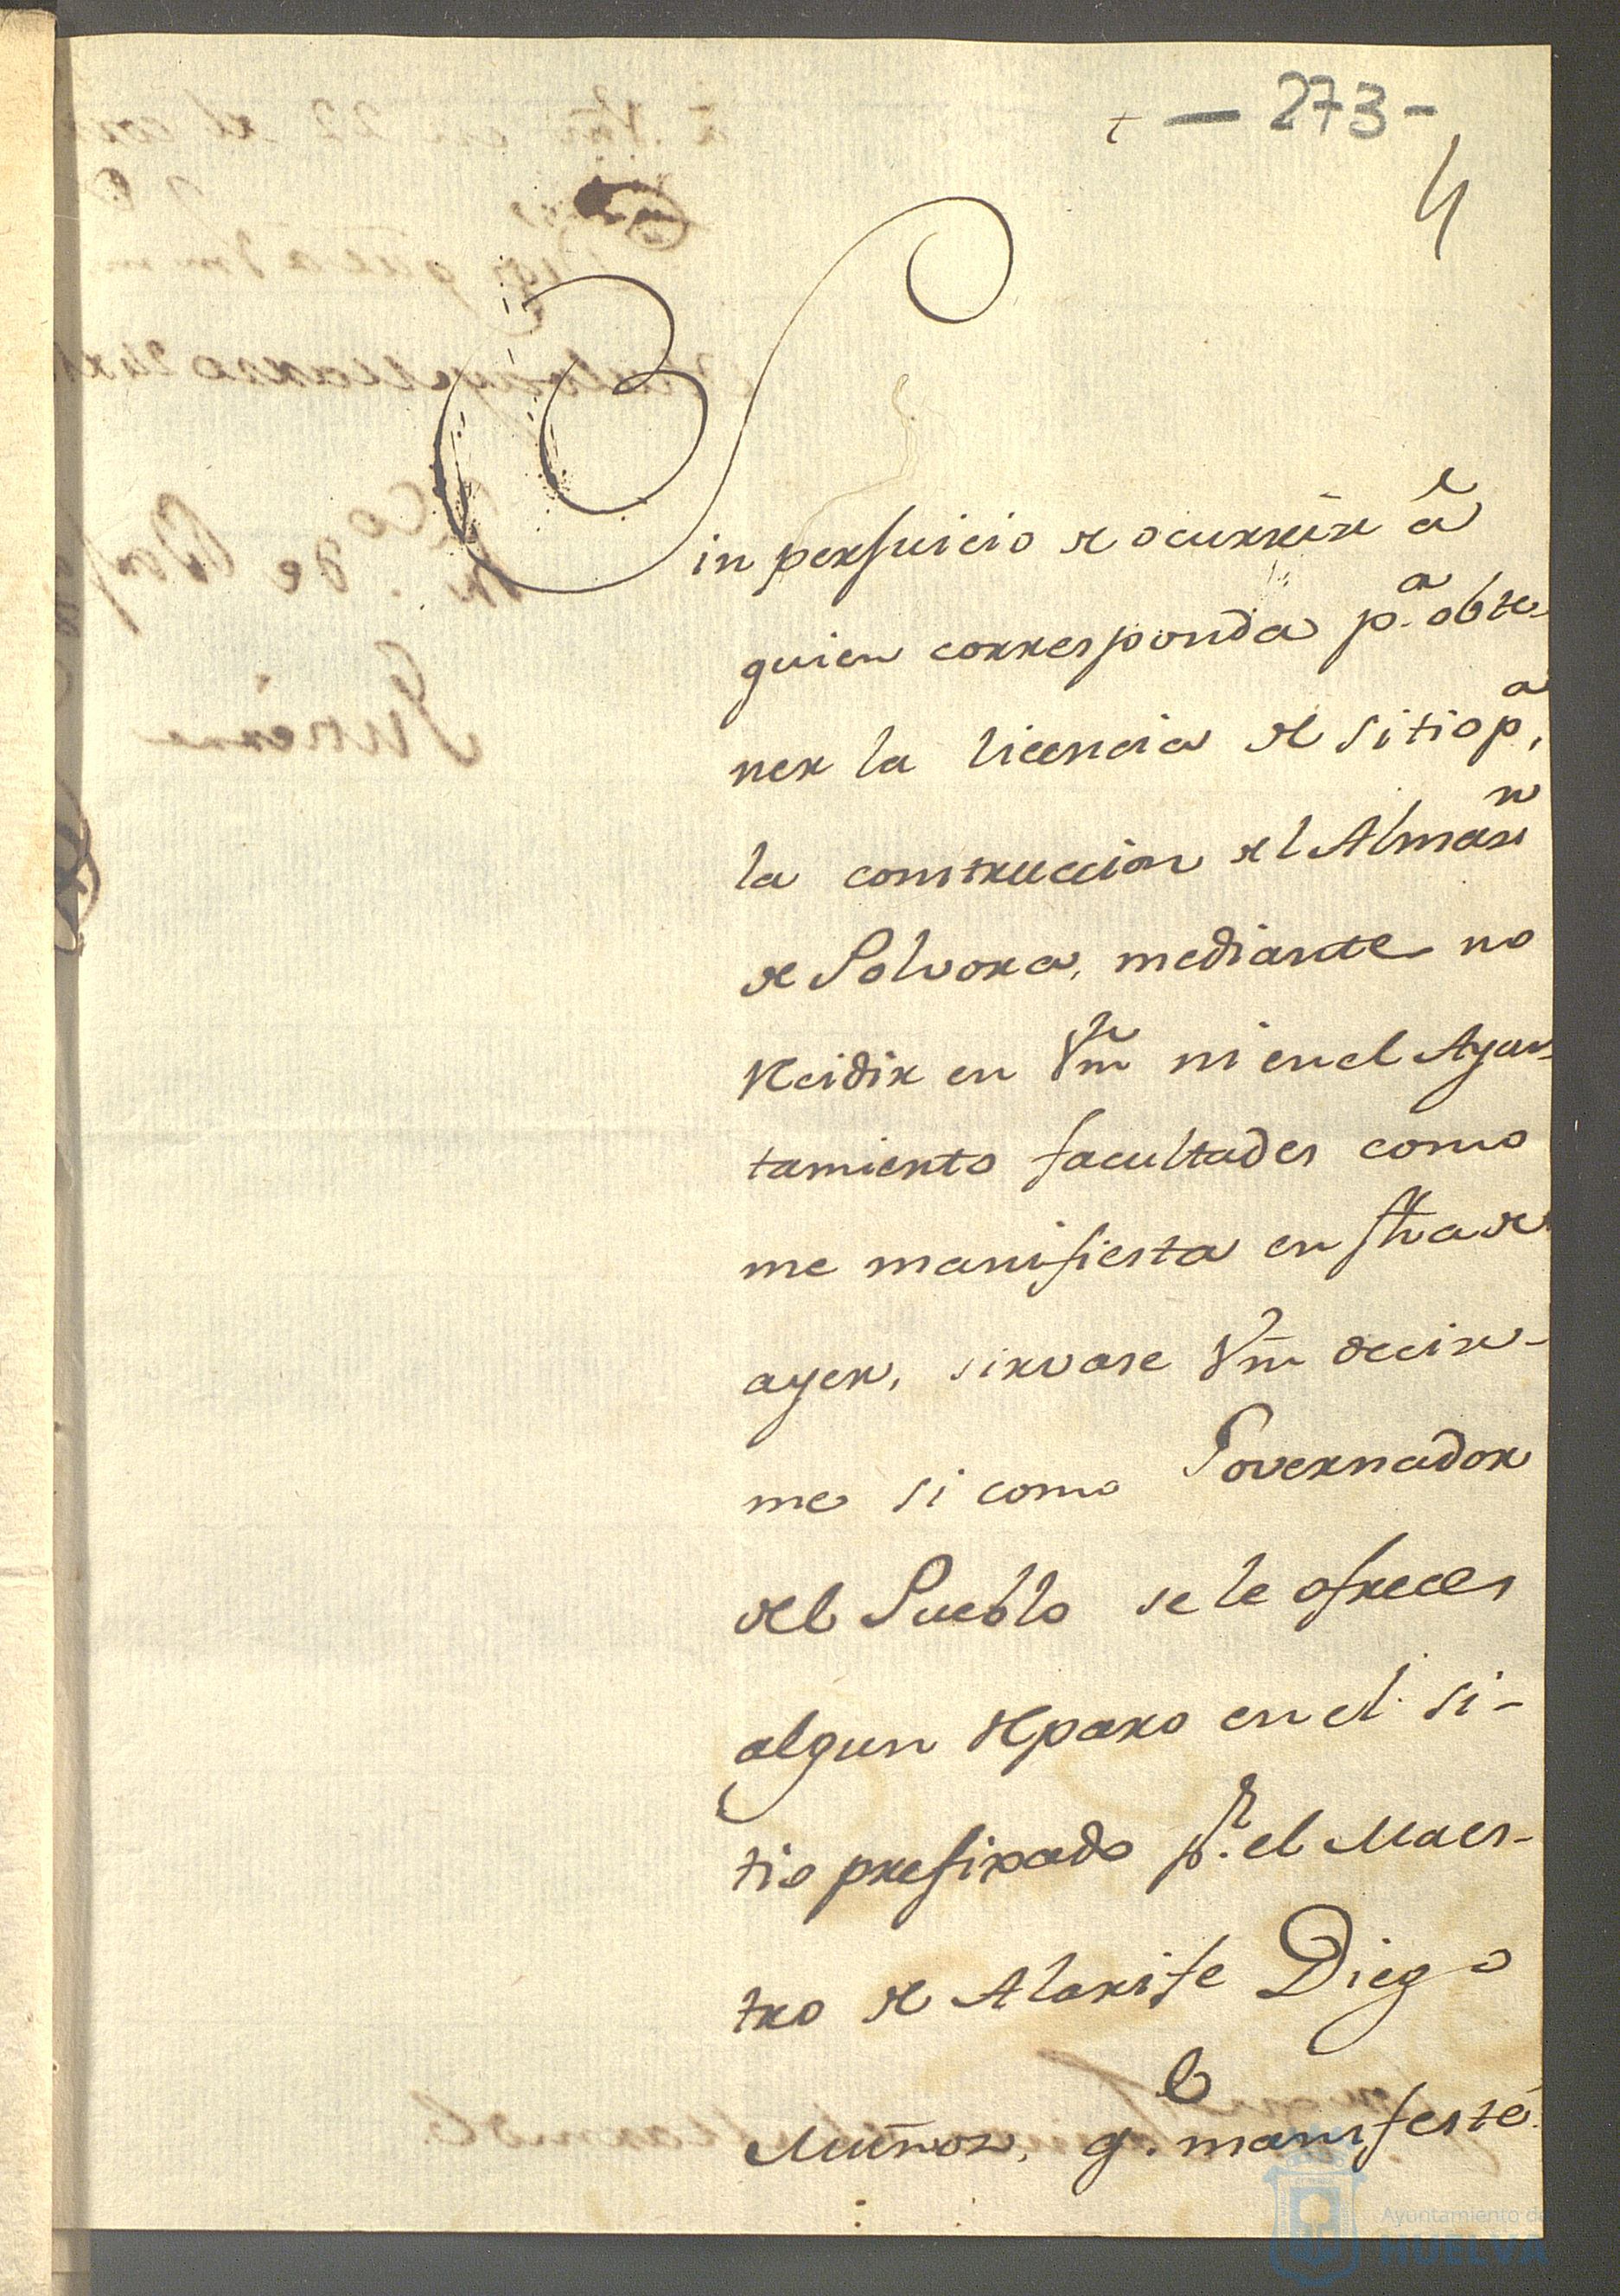 t — 273 -
4
Sin perjuicio de ocurrir â
quien corresponda p.ª obte-
ner la licencia de sitio p.ª
la construccion del Almasn
de Polvora, mediante no
Recidir en Vm ni en el Ayun-
tamiento facultades como
me manifiesta en fha de
ayer, sirvase Vm decir-
me si como Governador
del Pueblo se le ofrece
algun reparo en el si-
tio prefixado p.r el Maes-
tro de Alarife Diego
Muñoz, q.e manifesté
Ayuntamiento de
HUELVA